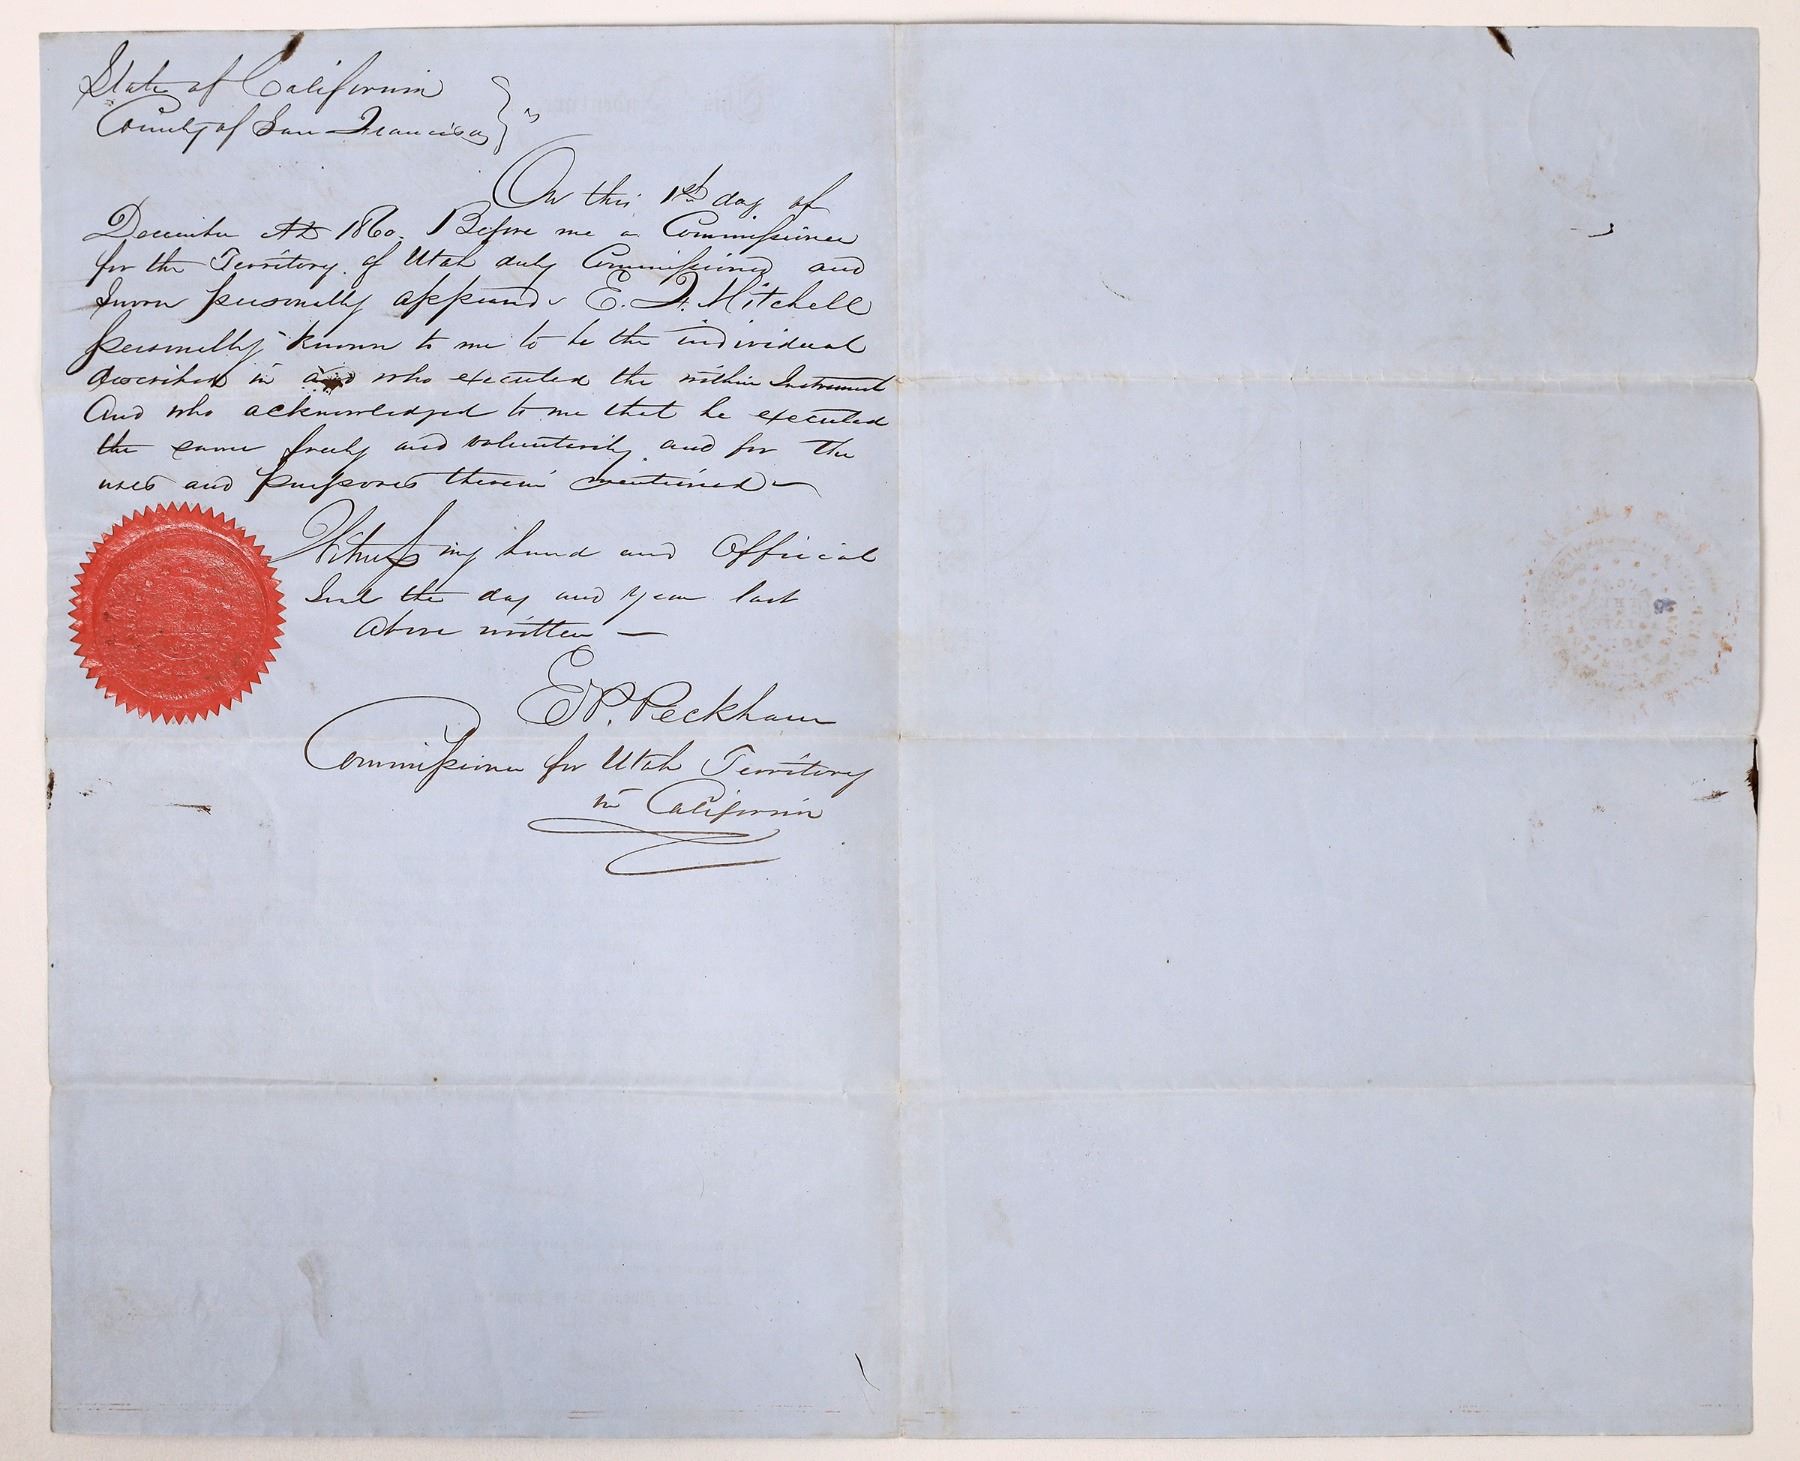 State of California
County of San Francisco } ss
On this 1st day of
December AD 1860. Before me a Commissioner
for the Territory of Utah duly Commissioned and
Sworn personally appeared E. F. Mitchell
personally known to me to be the individual
described in and who executed the within Instrument
And who acknowledged to me that he executed
the same freely and voluntarily and for the
uses and purposes therein mentioned —
Witness my hand and Official
Seal the day and year last
above written —
E. P. Peckham
Commissioner for Utah Territory
in California